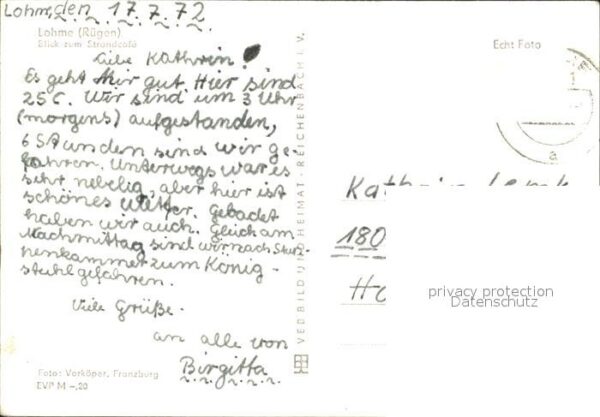 Lohme, den 17.7.72
Lohme (Rügen)
Blick zum Strandcafé
Liebe Kathrin!
Es geht mir gut. Hier sind
25 C. Wir sind um 3 Uhr
(morgens) aufgestanden,
6 Stunden sind wir ge-
fahren. Unterwegs war es
sehr nebelig, aber hier ist
schönes Wetter. Gebadet
haben wir auch. Gleich am
Nachmittag sind wir nach Stub-
benkammer zum König-
stuhl gefahren.
Viele Grüße
an alle von
Birgitta
Foto: Vorköper, Franzburg
EVP M -,20
VEB BILD UND HEIMAT · REICHENBACH I. V.
Echt Foto
a
Kathrin
180
privacy protection
Datenschutz